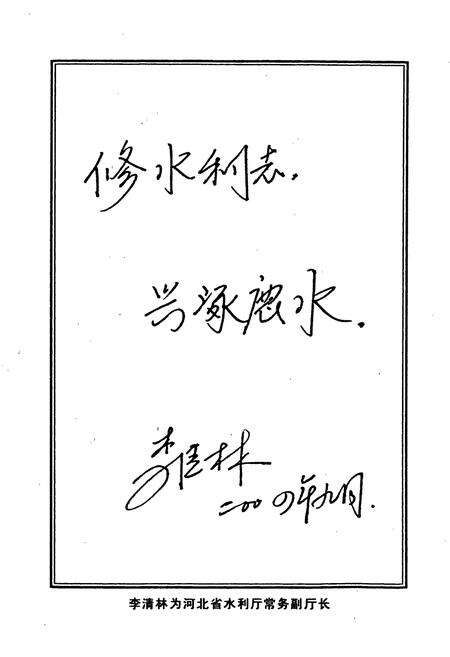 修水利志，
兴涿鹿水。
李清林
二〇〇四年九月.
李清林为河北省水利厅常务副厅长